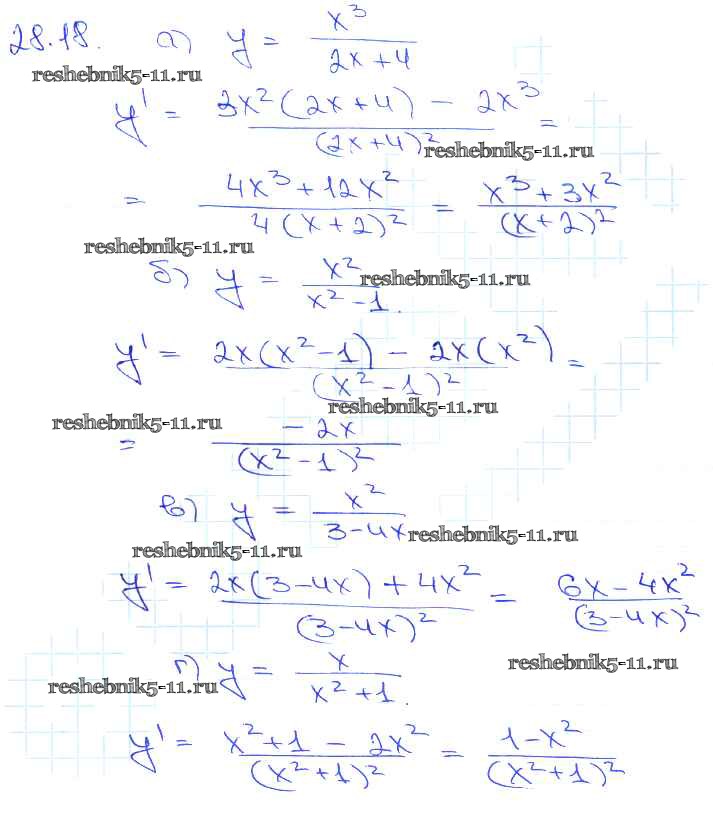 28.18. а) y = x³ / (2x+4)
reshebnik5-11.ru
y' = (3x²(2x+4) − 2x³) / (2x+4)² =
reshebnik5-11.ru
= (4x³+12x²) / (4(x+2)²) = (x³+3x²) / (x+2)²
reshebnik5-11.ru
б) y = x² / (x²−1).
reshebnik5-11.ru
y' = (2x(x²−1) − 2x(x²)) / (x²−1)² =
reshebnik5-11.ru
reshebnik5-11.ru
= −2x / (x²−1)²
в) y = x² / (3−4x)
reshebnik5-11.ru
reshebnik5-11.ru
y' = (2x(3−4x)+4x²) / (3−4x)² = (6x−4x²) / (3−4x)²
г) y = x / (x²+1).
reshebnik5-11.ru
reshebnik5-11.ru
y' = (x²+1 − 2x²) / (x²+1)² = (1−x²) / (x²+1)²